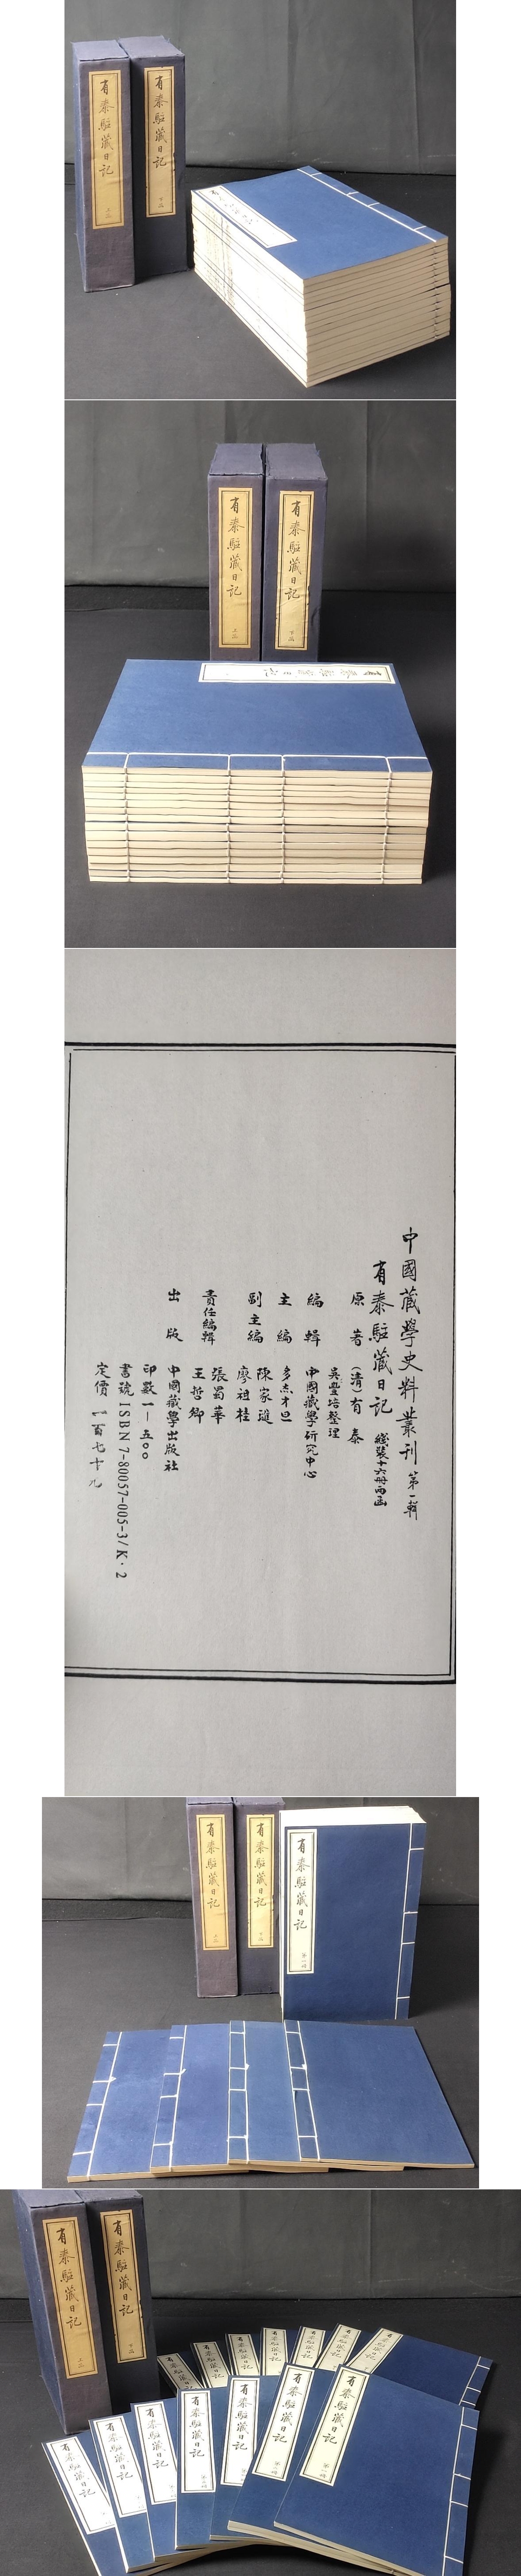 有泰駐藏日記
上函
有泰駐藏日記
下函
有泰駐藏日記
上函
有泰駐藏日記
下函
有泰駐藏日記
中國藏學史料叢刊 第一輯
有泰駐藏日記 綫裝十六冊兩函
原著 (清)有泰
吳豐培整理
編輯 中國藏學研究中心
主編 多杰才旦
副主編 陳家璡
廖祖桂
責任編輯 張蜀華
王哲卿
出版 中國藏學出版社
印數 一—五〇〇
書號 ISBN 7-80057-005-3/K·2
定價 一百七十九
有泰駐藏日記
上函
有泰駐藏日記
下函
有泰駐藏日記
第一冊
有泰駐藏日記
上函
有泰駐藏日記
下函
有泰駐藏日記
有泰駐藏日記
有泰駐藏日記
有泰駐藏日記
有泰駐藏日記
有泰駐藏日記
有泰駐藏日記
有泰駐藏日記
有泰駐藏日記
有泰駐藏日記
有泰駐藏日記
有泰駐藏日記
有泰駐藏日記
有泰駐藏日記
第一冊